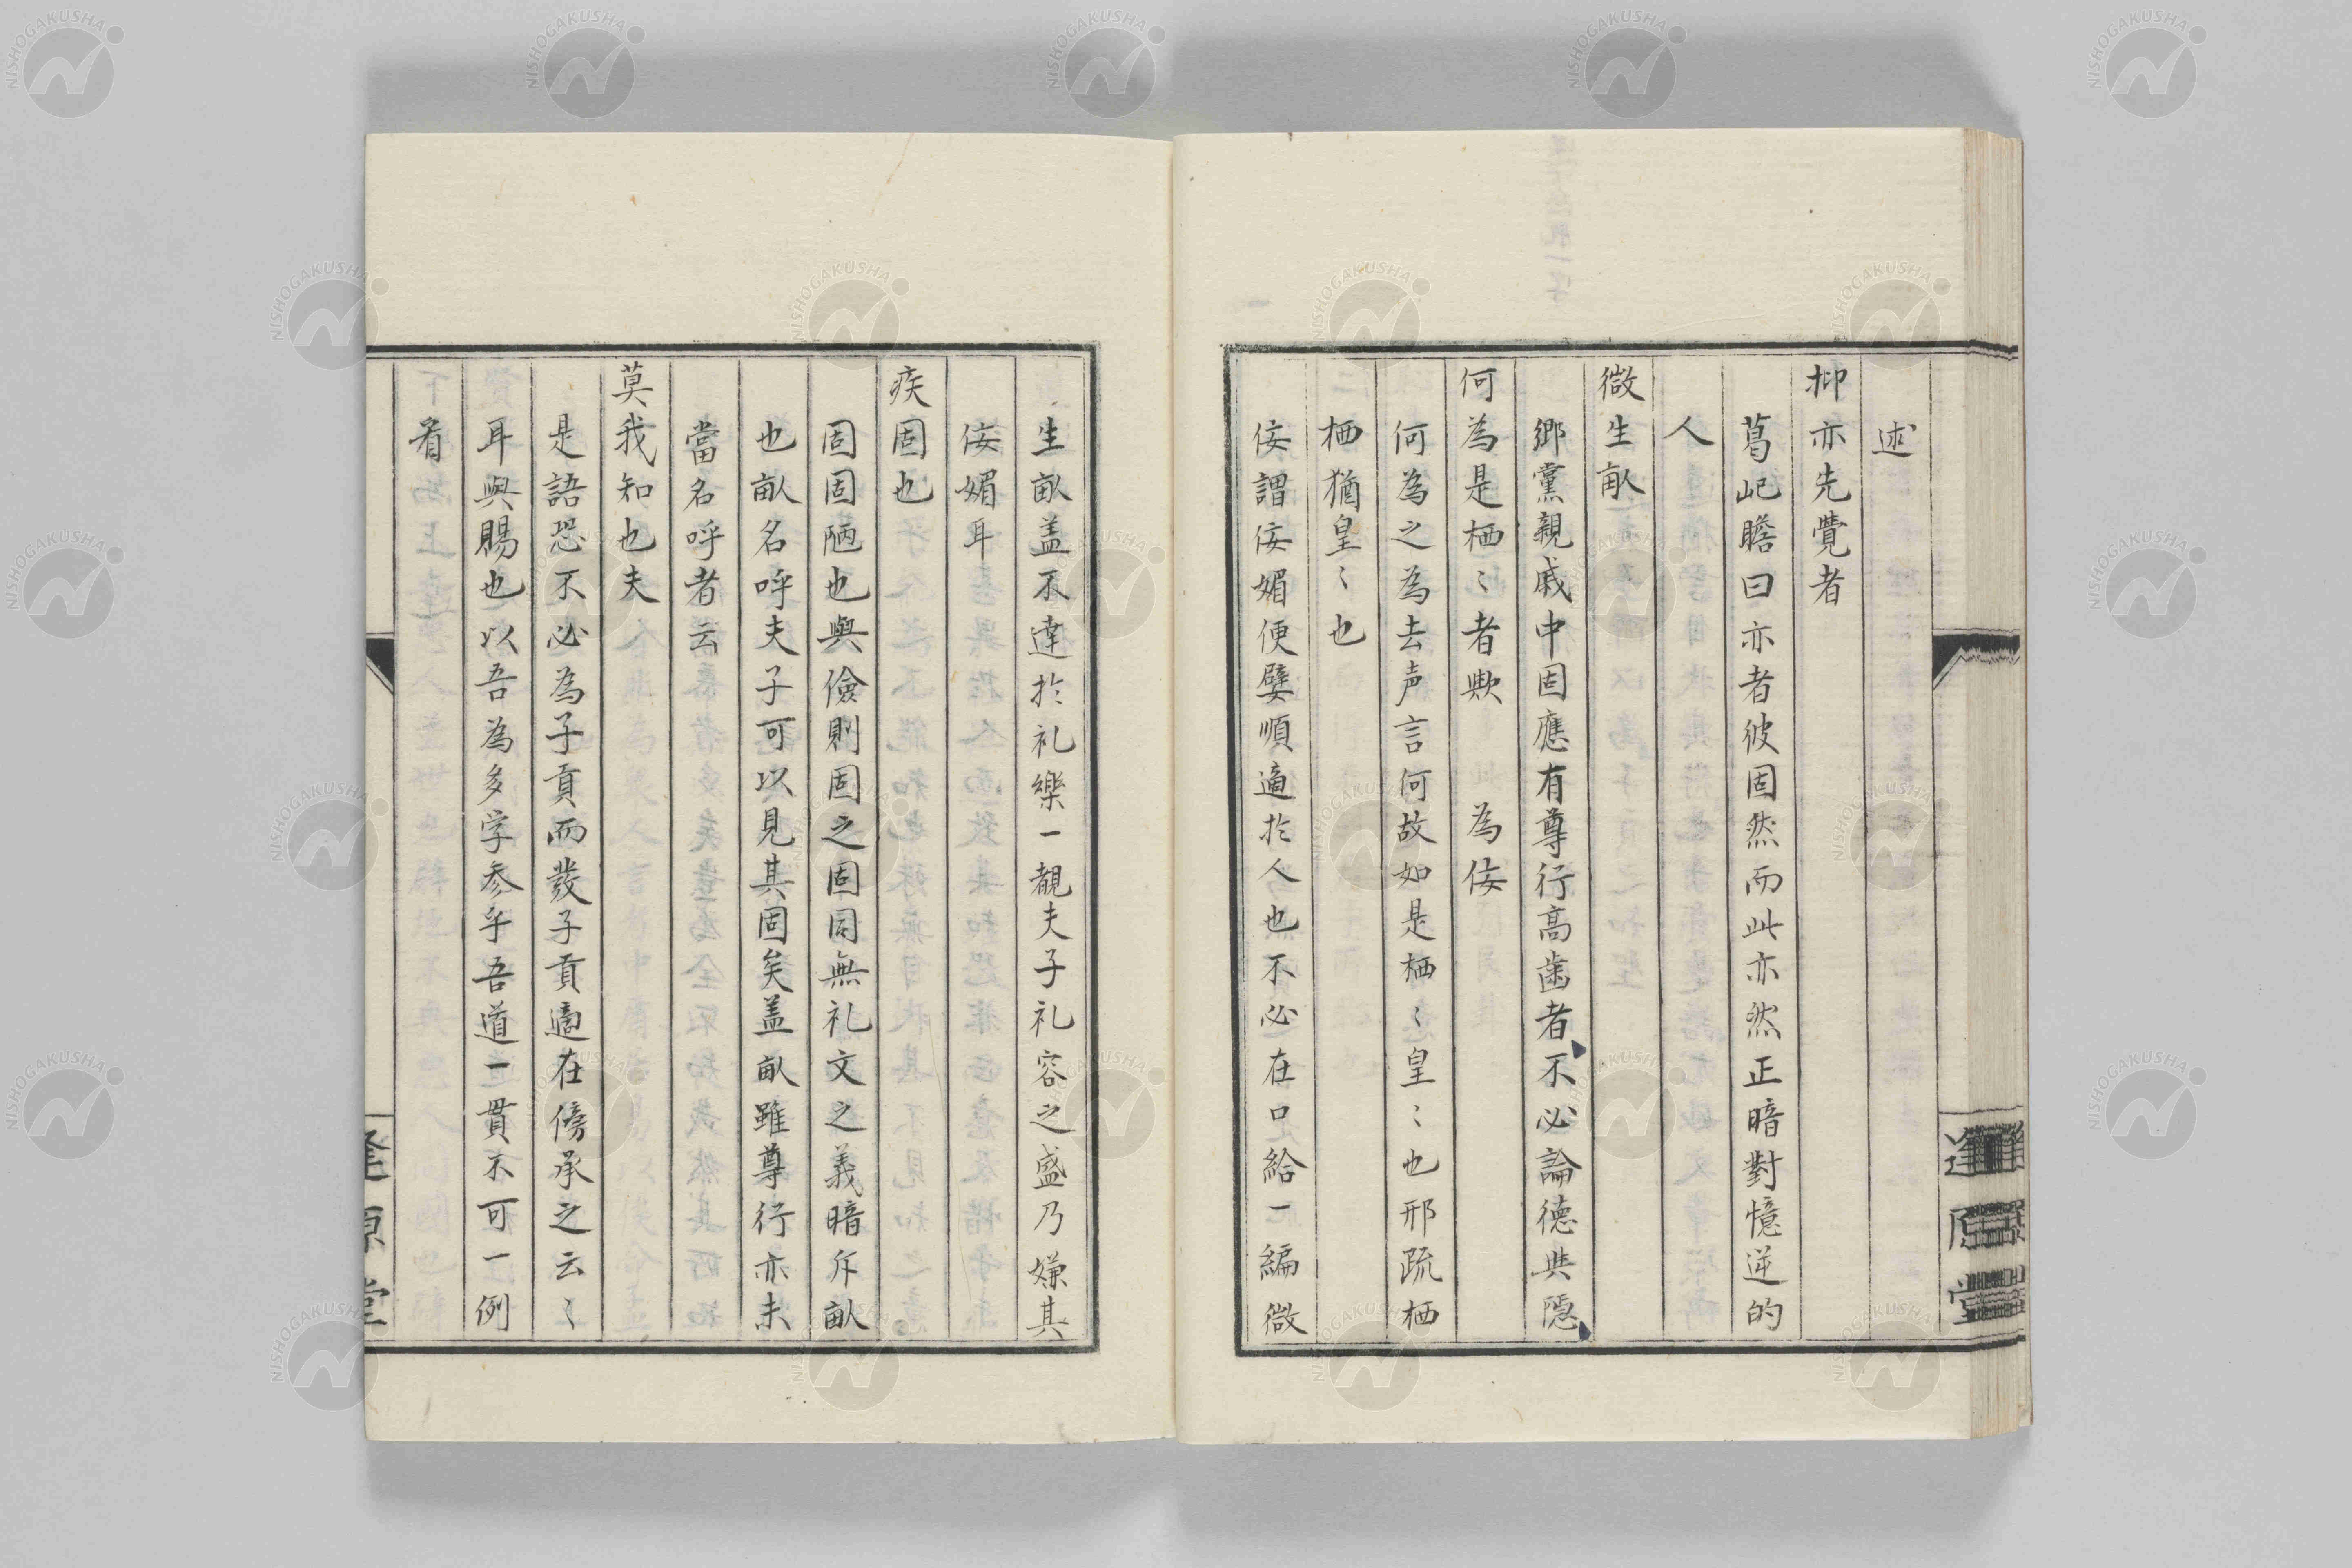 述
抑亦先覺者
葛屺瞻曰亦者彼固然而此亦然正暗對憶逆的
人
微生畝
鄉黨親戚中固應有尊行高歯者不必論德與隠
何為是栖〻者歟 為佞
何為之為去声言何故如是栖〻皇〻也邢疏栖
栖猶皇〻也
佞謂佞媚便嬖順適於人也不必在口給一編微
生畝盖不達於礼樂一覩夫子礼容之盛乃嫌其
佞媚耳
疾固也
固固陋也與儉則固之固同無礼文之義暗斥畝
也畝名呼夫子可以見其固矣盖畝雖尊行亦未
當名呼者云
莫我知也夫
是語恐不必為子貢而發子貢適在傍承之云〻
耳與賜也以吾為多学参乎吾道一貫不可一例
看
逢原堂
逢原堂